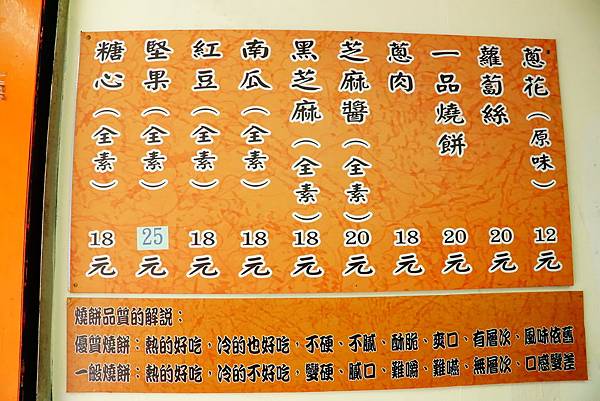 蔥花（原味）12元
蘿蔔絲 20元
一品燒餅 20元
蔥肉 18元
芝麻醬（全素）20元
黑芝麻（全素）18元
南瓜（全素）18元
紅豆（全素）18元
堅果（全素）25元
糖心（全素）18元
燒餅品質的解說：
優質燒餅：熱的好吃，冷的也好吃，不硬、不膩、酥脆、爽口、有層次、風味依舊
一般燒餅：熱的好吃，冷的不好吃，變硬、膩口、難嚼、難嚥、無層次、口感變差